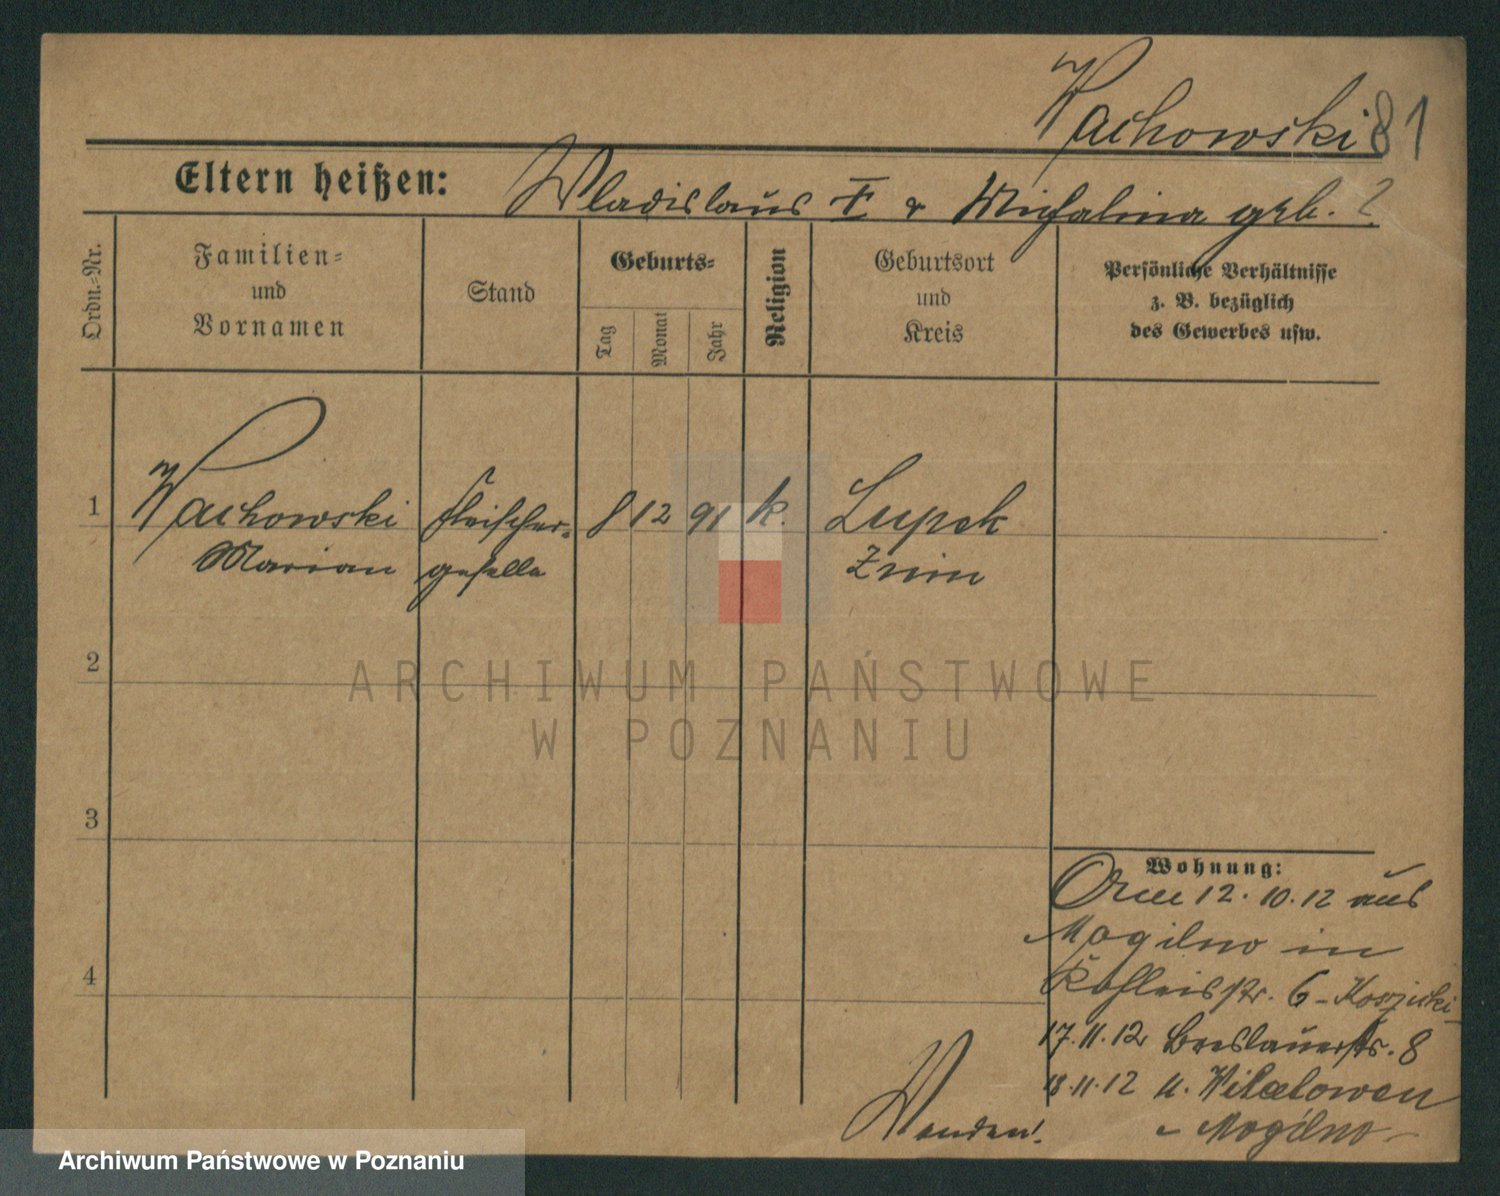 Wachowski 81
Eltern heißen: Wladislaus † u Michalina geb. ?
Ordn.-Nr.
Familien-
und
Vornamen
Stand
Geburts-
Tag
Monat
Jahr
Religion
Geburtsort
und
Kreis
Persönliche Verhältnisse
z. B. bezüglich
des Gewerbes usw.
1 Wachowski Fleischer- 8 12 91 k. Lupek
Marian geselle Znin
2
3
4
Wohnung:
12.10.12 aus
Mogilno in
6 -
17.11.12 Breslauerstr. 8
18.11.12 n.
- Mogilno -
Wenden!
ARCHIWUM PAŃSTWOWE
W POZNANIU
Archiwum Państwowe w Poznaniu